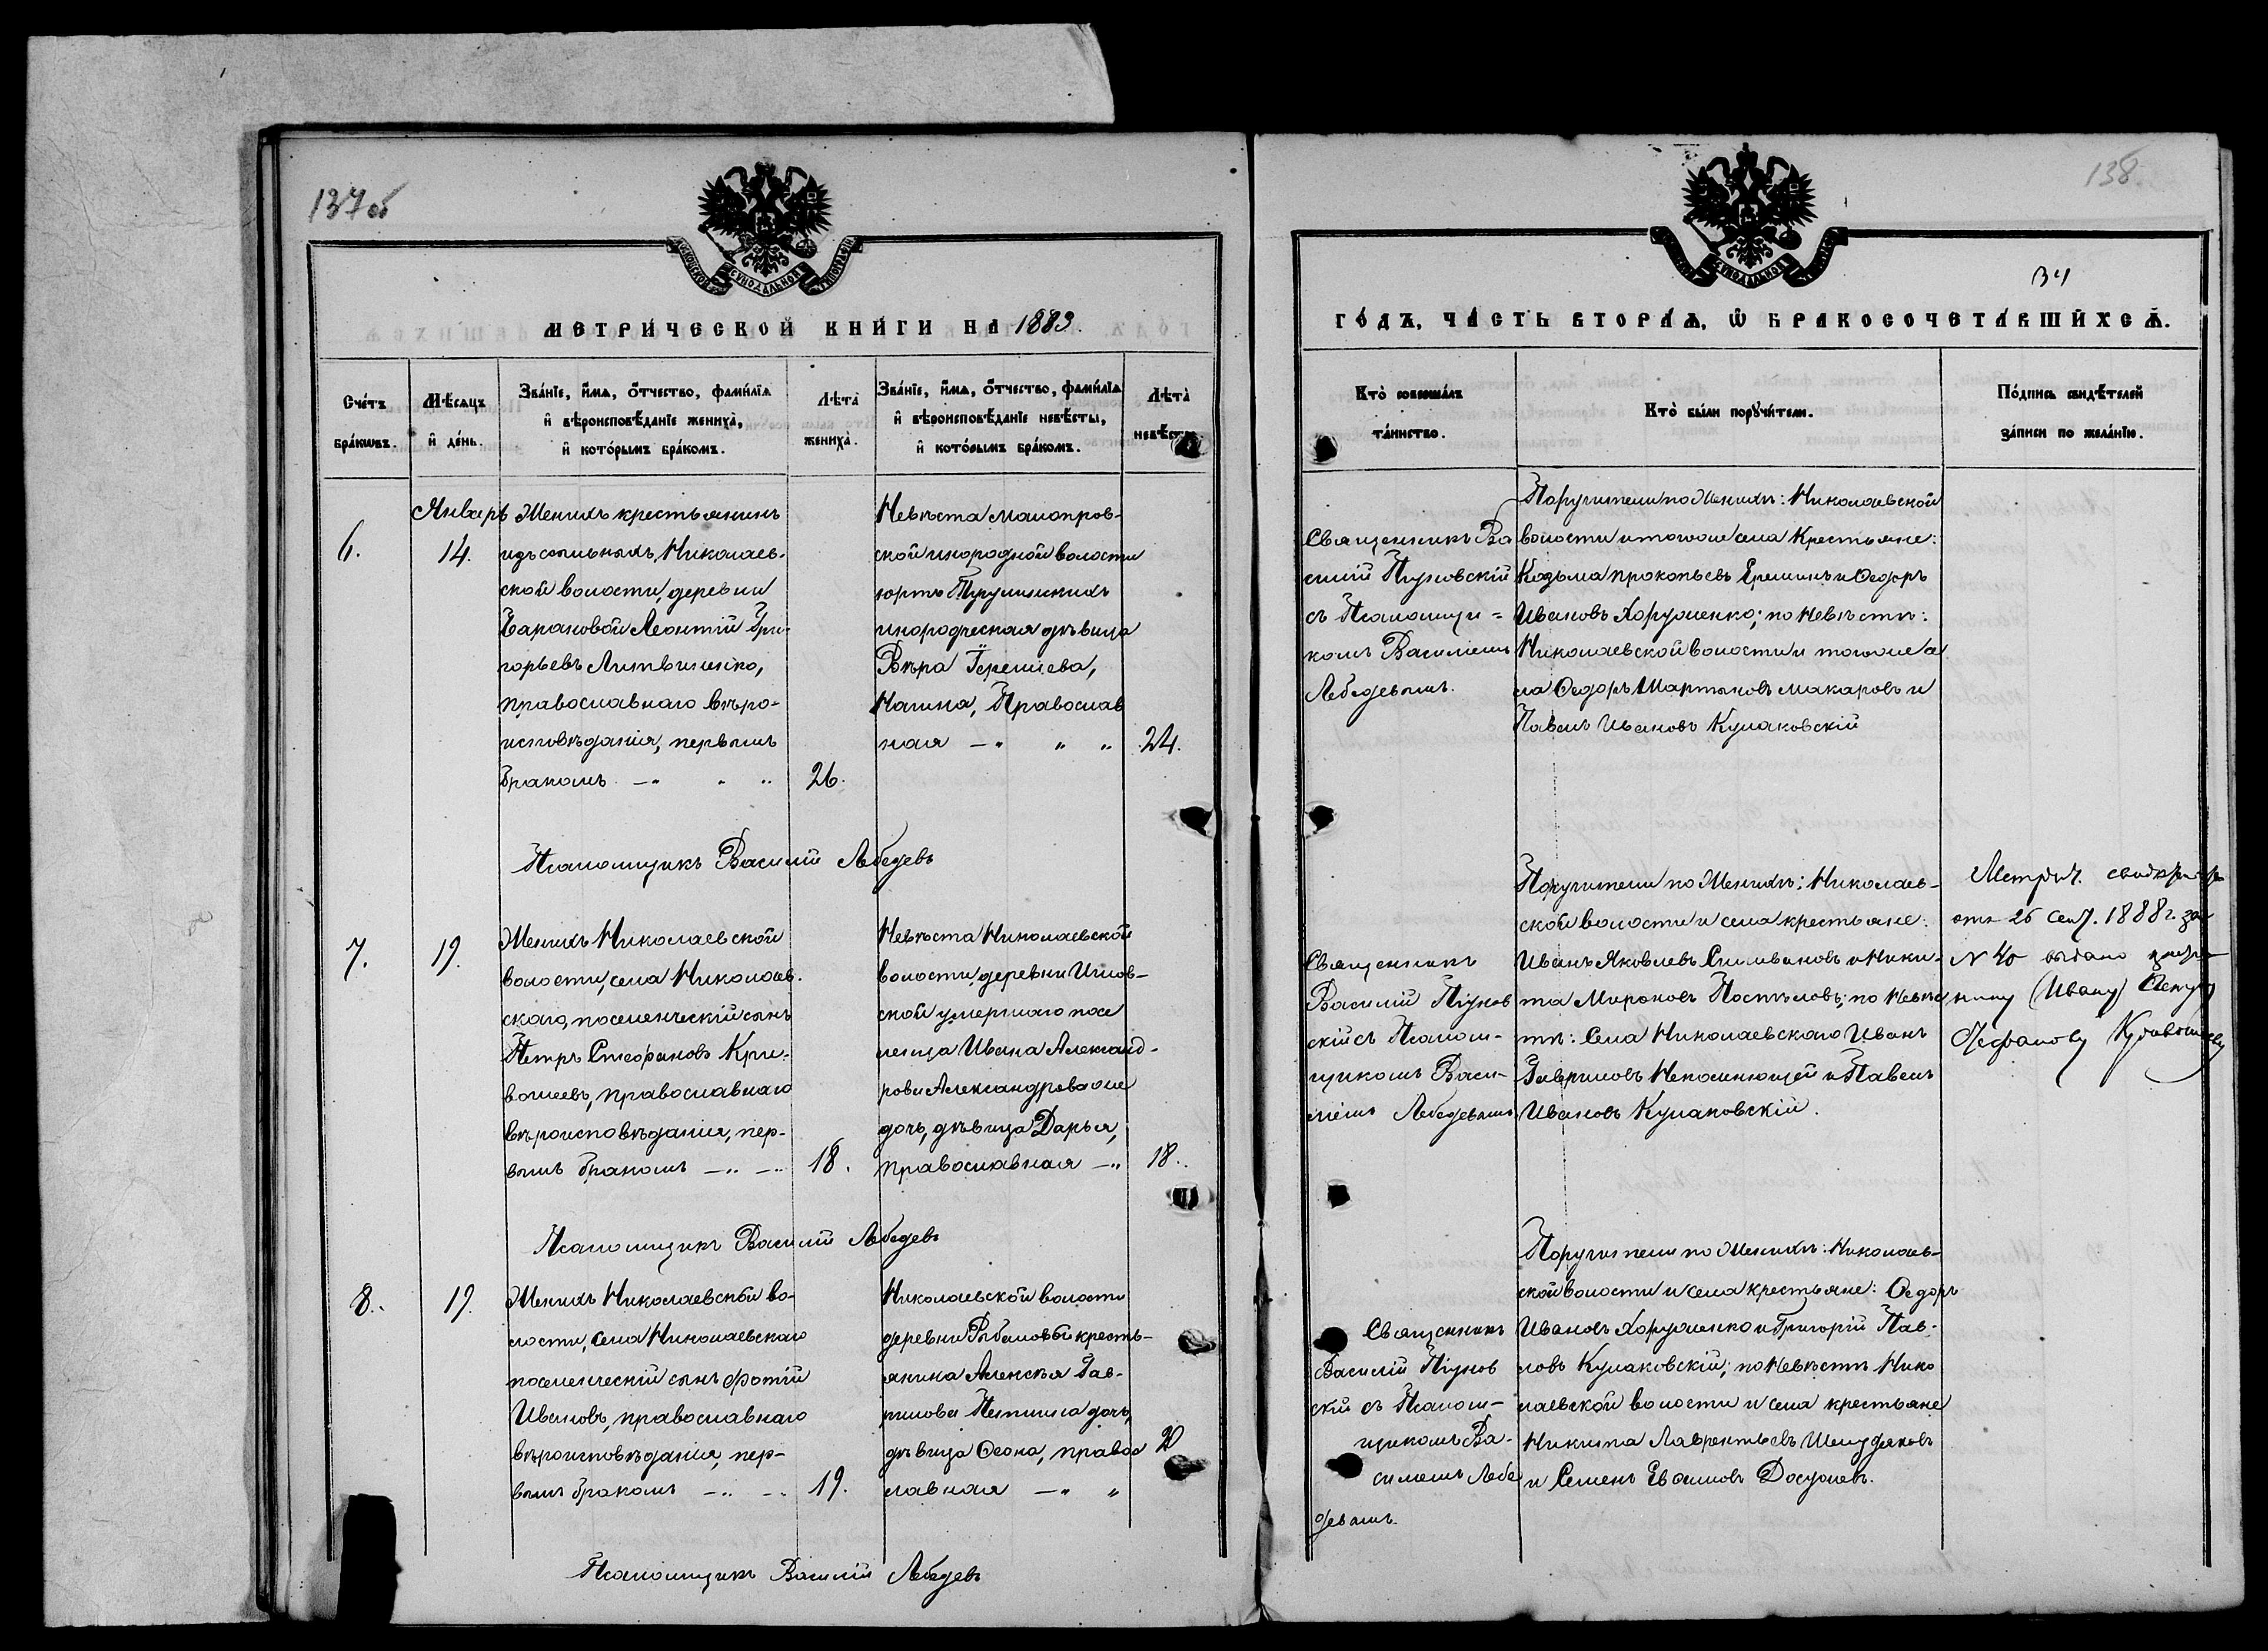 137 об
МОСКОВСКОЙ СѴНОДАЛЬНОЙ ТИПОГРАФІИ
МЕТРИ́ЧЕСКОЙ КНИ́ГИ НА 1883.
Сче́тъ бра́кѡвъ.
Мѣ́сяцъ и҆ де́нь.
Зва́нїе, и҆́мѧ, ѻ҆́тчество, фами́лїѧ
и҆ вѣроисповѣ́данїе жениха̀,
и҆ кото́рымъ бра́комъ.
Лѣта̀ жениха̀.
Зва́нїе, и҆́мѧ, ѻ҆́тчество, фами́лїѧ
и҆ вѣроисповѣ́данїе невѣ́сты,
и҆ кото́рымъ бра́комъ.
Лѣта̀
6.
Январь
14.
Женихъ крестьянинъ
изъ ссыльныхъ, Николаев-
ской волости, деревни
Барановой Леонтій Гри-
горьевъ Литвиненко,
православнаго вѣро-
исповѣданія, первымъ
бракомъ
26.
Невѣста
ской инородной волости
юртъ
инородческая дѣвица
Вѣра
Православ
ная
24.
Псаломщикъ Василій Лебедевъ
7.
19.
Женихъ Николаевской
волости, села Николаев-
скаго, поселенческій сынъ
Петръ Стефановъ Кри-
вошеевъ, православнаго
вѣроисповѣданія, пер-
вымъ бракомъ
18.
Невѣста Николаевской
волости, деревни
ской умершаго посе
ленца Ивана Александ-
рова Александрова же
дочь, дѣвица Дарья,
православная
18.
Псаломщикъ Василій Лебедевъ
8.
19.
Женихъ Николаевской во-
лости, села Николаевскаго
поселенческій сынъ Фотій
Ивановъ, православнаго
вѣроисповѣданія, пер-
вымъ бракомъ
19.
Николаевской волости
деревни Рыбаловой кресть-
янина Алексѣя Гав-
рилова дочь,
дѣвица правос
лавная
20
Псаломщикъ Василій Лебедевъ
138
СѴНОДАЛЬНОЙ
34
ГО́ДЪ, ЧА́СТЬ ВТОРА́Ѧ, Ѽ БРАКОСОЧЕТА́ВШИХСѦ.
Кто̀ соверша́лъ та́инство.
Кто̀ бы́ли порꙋчи́тели.
По́дпись свидѣ́телей за́писи по жела́нїю.
Священникъ Ва
силій Піуновскій
съ Псаломщи=
комъ Василіемъ
Лебедевымъ.
Поручители по Женихѣ: Николаевской
волости и того же села Крестьяне:
Козьма Прокопьевъ Ереминъ и Ѳедоръ
Ивановъ Хоруженко; по Невѣстѣ:
Николаевской волости и того же се
ла Ѳедоръ Мартыновъ Макаровъ и
Павелъ Ивановъ Кулаковскій
Священникъ
Василій Піунов
скій съ Псалом-
щикомъ Васи-
ліемъ Лебедевымъ
Поручители по Женихѣ: Николаев-
ской волости и села крестьяне:
Иванъ Яковлевъ Селивановъ и Ники-
та Мироновъ Поспѣловъ; по Невѣс
тѣ: Села Николаевскаго Иванъ
Гавриловъ Непомнющей и Павелъ
Ивановъ Кулаковскій.
Метрич.
отъ 26 Сент. 1888 г. за
N 40 выдано
(Ивану)
Стефанову Кривошееву
Священникъ
Василій Піунов
скій съ Псалом-
щикомъ Ва-
силіемъ Лебе
девымъ.
Поручители по Женихѣ: Николаев-
ской волости и села крестьяне: Ѳедоръ
Ивановъ Хоруженко и Григорій Пав-
ловъ Кулаковскій; по Невѣстѣ Нико
лаевской волости и села крестьяне
Никита Лаврентьевъ
и Семенъ